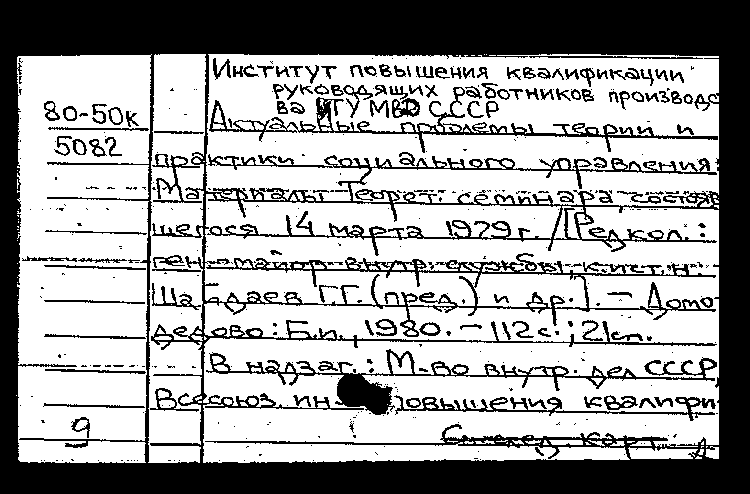 Институт повышения квалификации
руководящих работников производс
80-50к
ва ИГУ МВD СССР
Актуальные проблемы теории и
5082
практики социального управления:
Материалы Теорет. семинара, состояв
шегося 14 марта 1979г. /[Редкол.:
ген.-майор внутр. службы, к.ист.н.
Шабдаев Г.Г. (пред.) и др.]. - Домо-
дедово: Б.и., 1980. - 112 с.; 21см.
В надзаг.: М-во внутр. дел СССР,
Всесоюз. ин повышения квалифи-
9
карт.